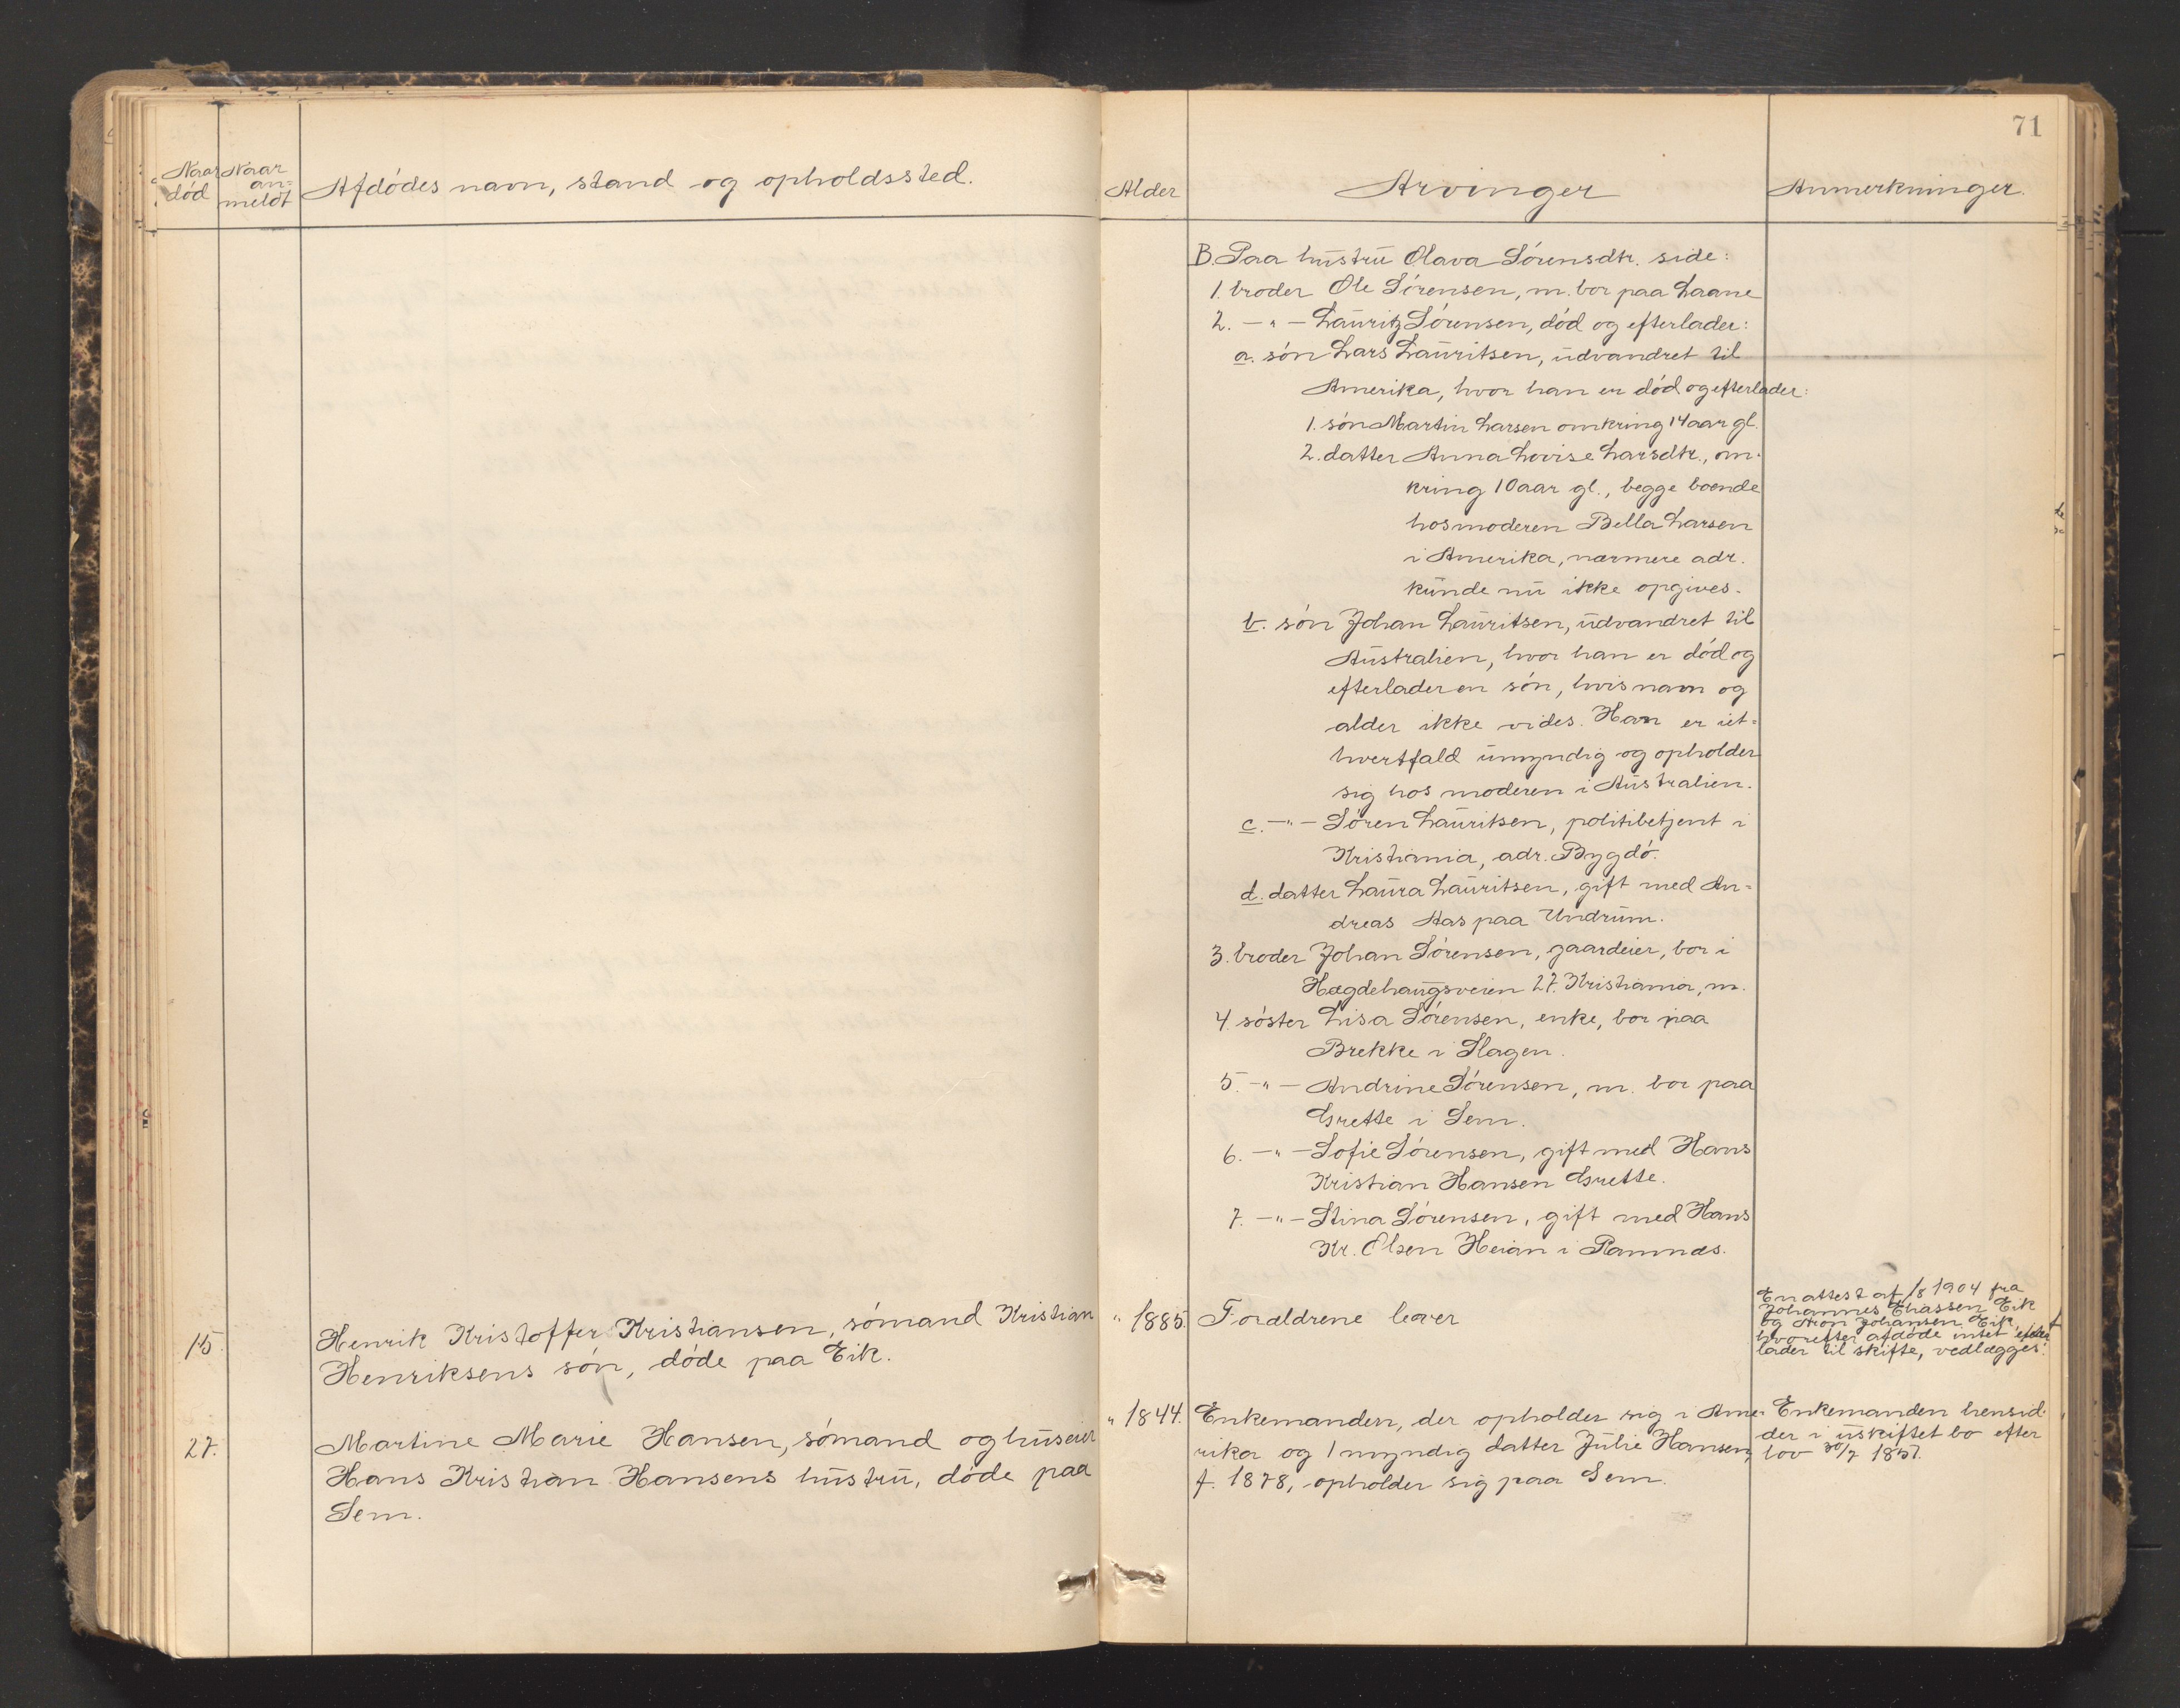 71
Naar død
Naar an=
meldt
Afdødes navn, stand og opholdssted.
Alder
Arvinger
Anmerkninger.
B. Paa hustru Olava Sørensdtr. side:
1. broder Ole Sørensen, m. bor paa Laane
2. —"— Lauritz Sørensen, død og efterlader:
a. søn Lars Lauritsen, udvandret til
Amerika, hvor han er død og efterlader:
1. søn Martin Larsen omkring 14 aar gl.
2. datter Anna Lovise Larsdtr., om-
kring 10 aar gl., begge boende
hos moderen Bella Larsen
i Amerika, nærmere adr.
kunde nu ikke opgives.
b. søn Johan Lauritsen, udvandret til
Australien, hvor han er død og
efterlader en søn, hvis navn og
alder ikke vides. Han er iet=
hvertfald umyndig og opholder
sig hos moderen i Australien.
c. —"— Søren Lauritsen, politibetjent i
Kristiania, adr. Bygdø.
d. datter Laura Lauritsen, gift med An=
dreas Aas paa Undrum.
3. broder Johan Sørensen, gaardeier, bor i
Hægdehaugsveien 27. Kristiania, m.
4. søster Lisa Sørensen, enke, bor paa
Brekke i Slagen.
5. —"— Andrine Sørensen, m. bor paa
Grette i Sem.
6. —"— Sofie Sørensen, gift med Hans
Kristian Hansen Grette.
7. —"— Stina Sørensen, gift med Hans
Kr. Olsen Heian i Ramnæs.
15.
Henrik Kristoffer Kristiansen, sømand Kristian
Henriksens søn, døde paa Eik.
" 1885.
Forældrene lever
En attest af 1/8 1904 fra
Johannes Eliassen Eik
og Aron Johansen Eik,
hvorefter afdøde intet efter
lader til skifte, vedlægges.
27.
Martine Marie Hansen, sømand og huseier
Hans Kristian Hansens hustru, døde paa
Sem.
" 1844.
Enkemanden, der opholder sig i Ame-
rika og 1 myndig datter Julie Hansen,
f. 1878, opholder sig paa Sem.
Enkemanden hensid-
der i uskiftet bo efter
lov 30/7 1851.